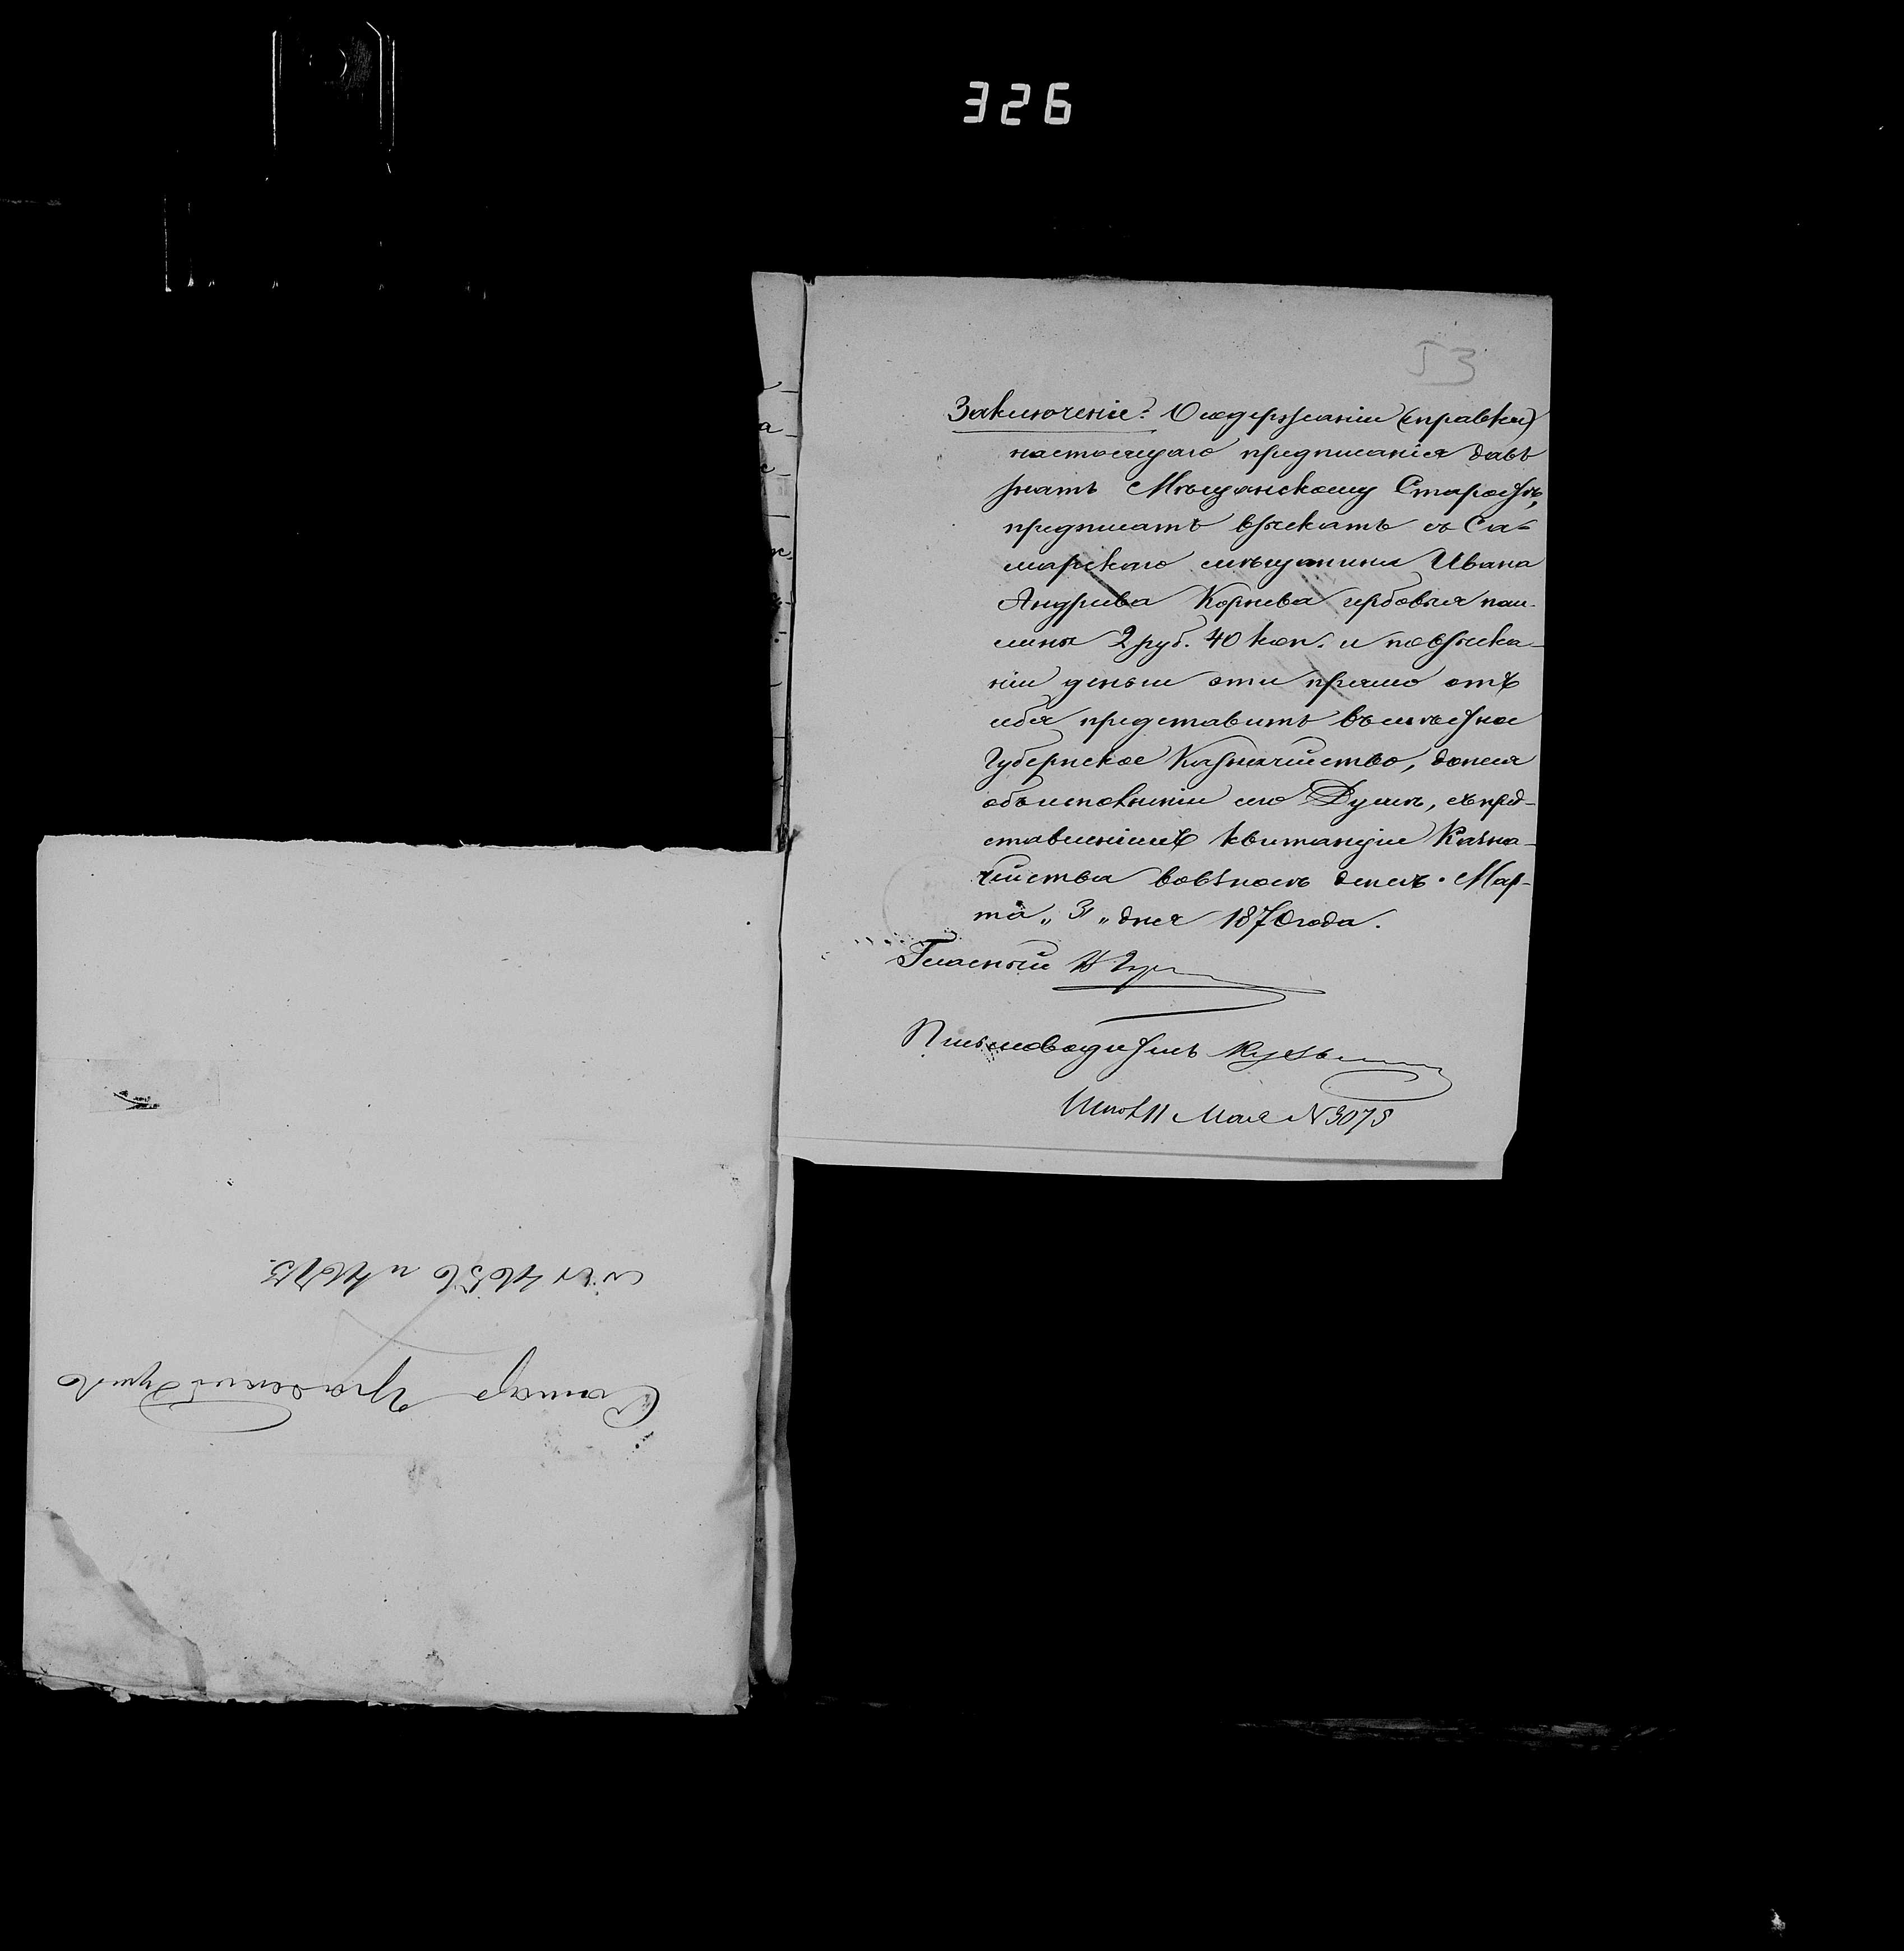 326
53
Заключеніе: О содержаніи (справки)
настоящаго предписанія давъ
знать Мѣщанскому Старостѣ,
предписать взыскать съ Са-
марскаго мѣщанина Ивана
Андреева Корнева гербовыя пош-
лины 2 руб. 40 коп. и по взыска-
ніи деньги эти прямо отъ
себя представить въ мѣстное
Губернское Казначейство, донеся
объ исполненіи сего Думѣ, съ пред-
ставленіемъ квитанціи Казна-
чейства во взносѣ денегъ. Мар-
та „ 31 „ дня 1870 года.
Гласный
Письмоводитель
Исп. 11 Мая N 3075
Самар Градской Думѣ
4656 и 4675.